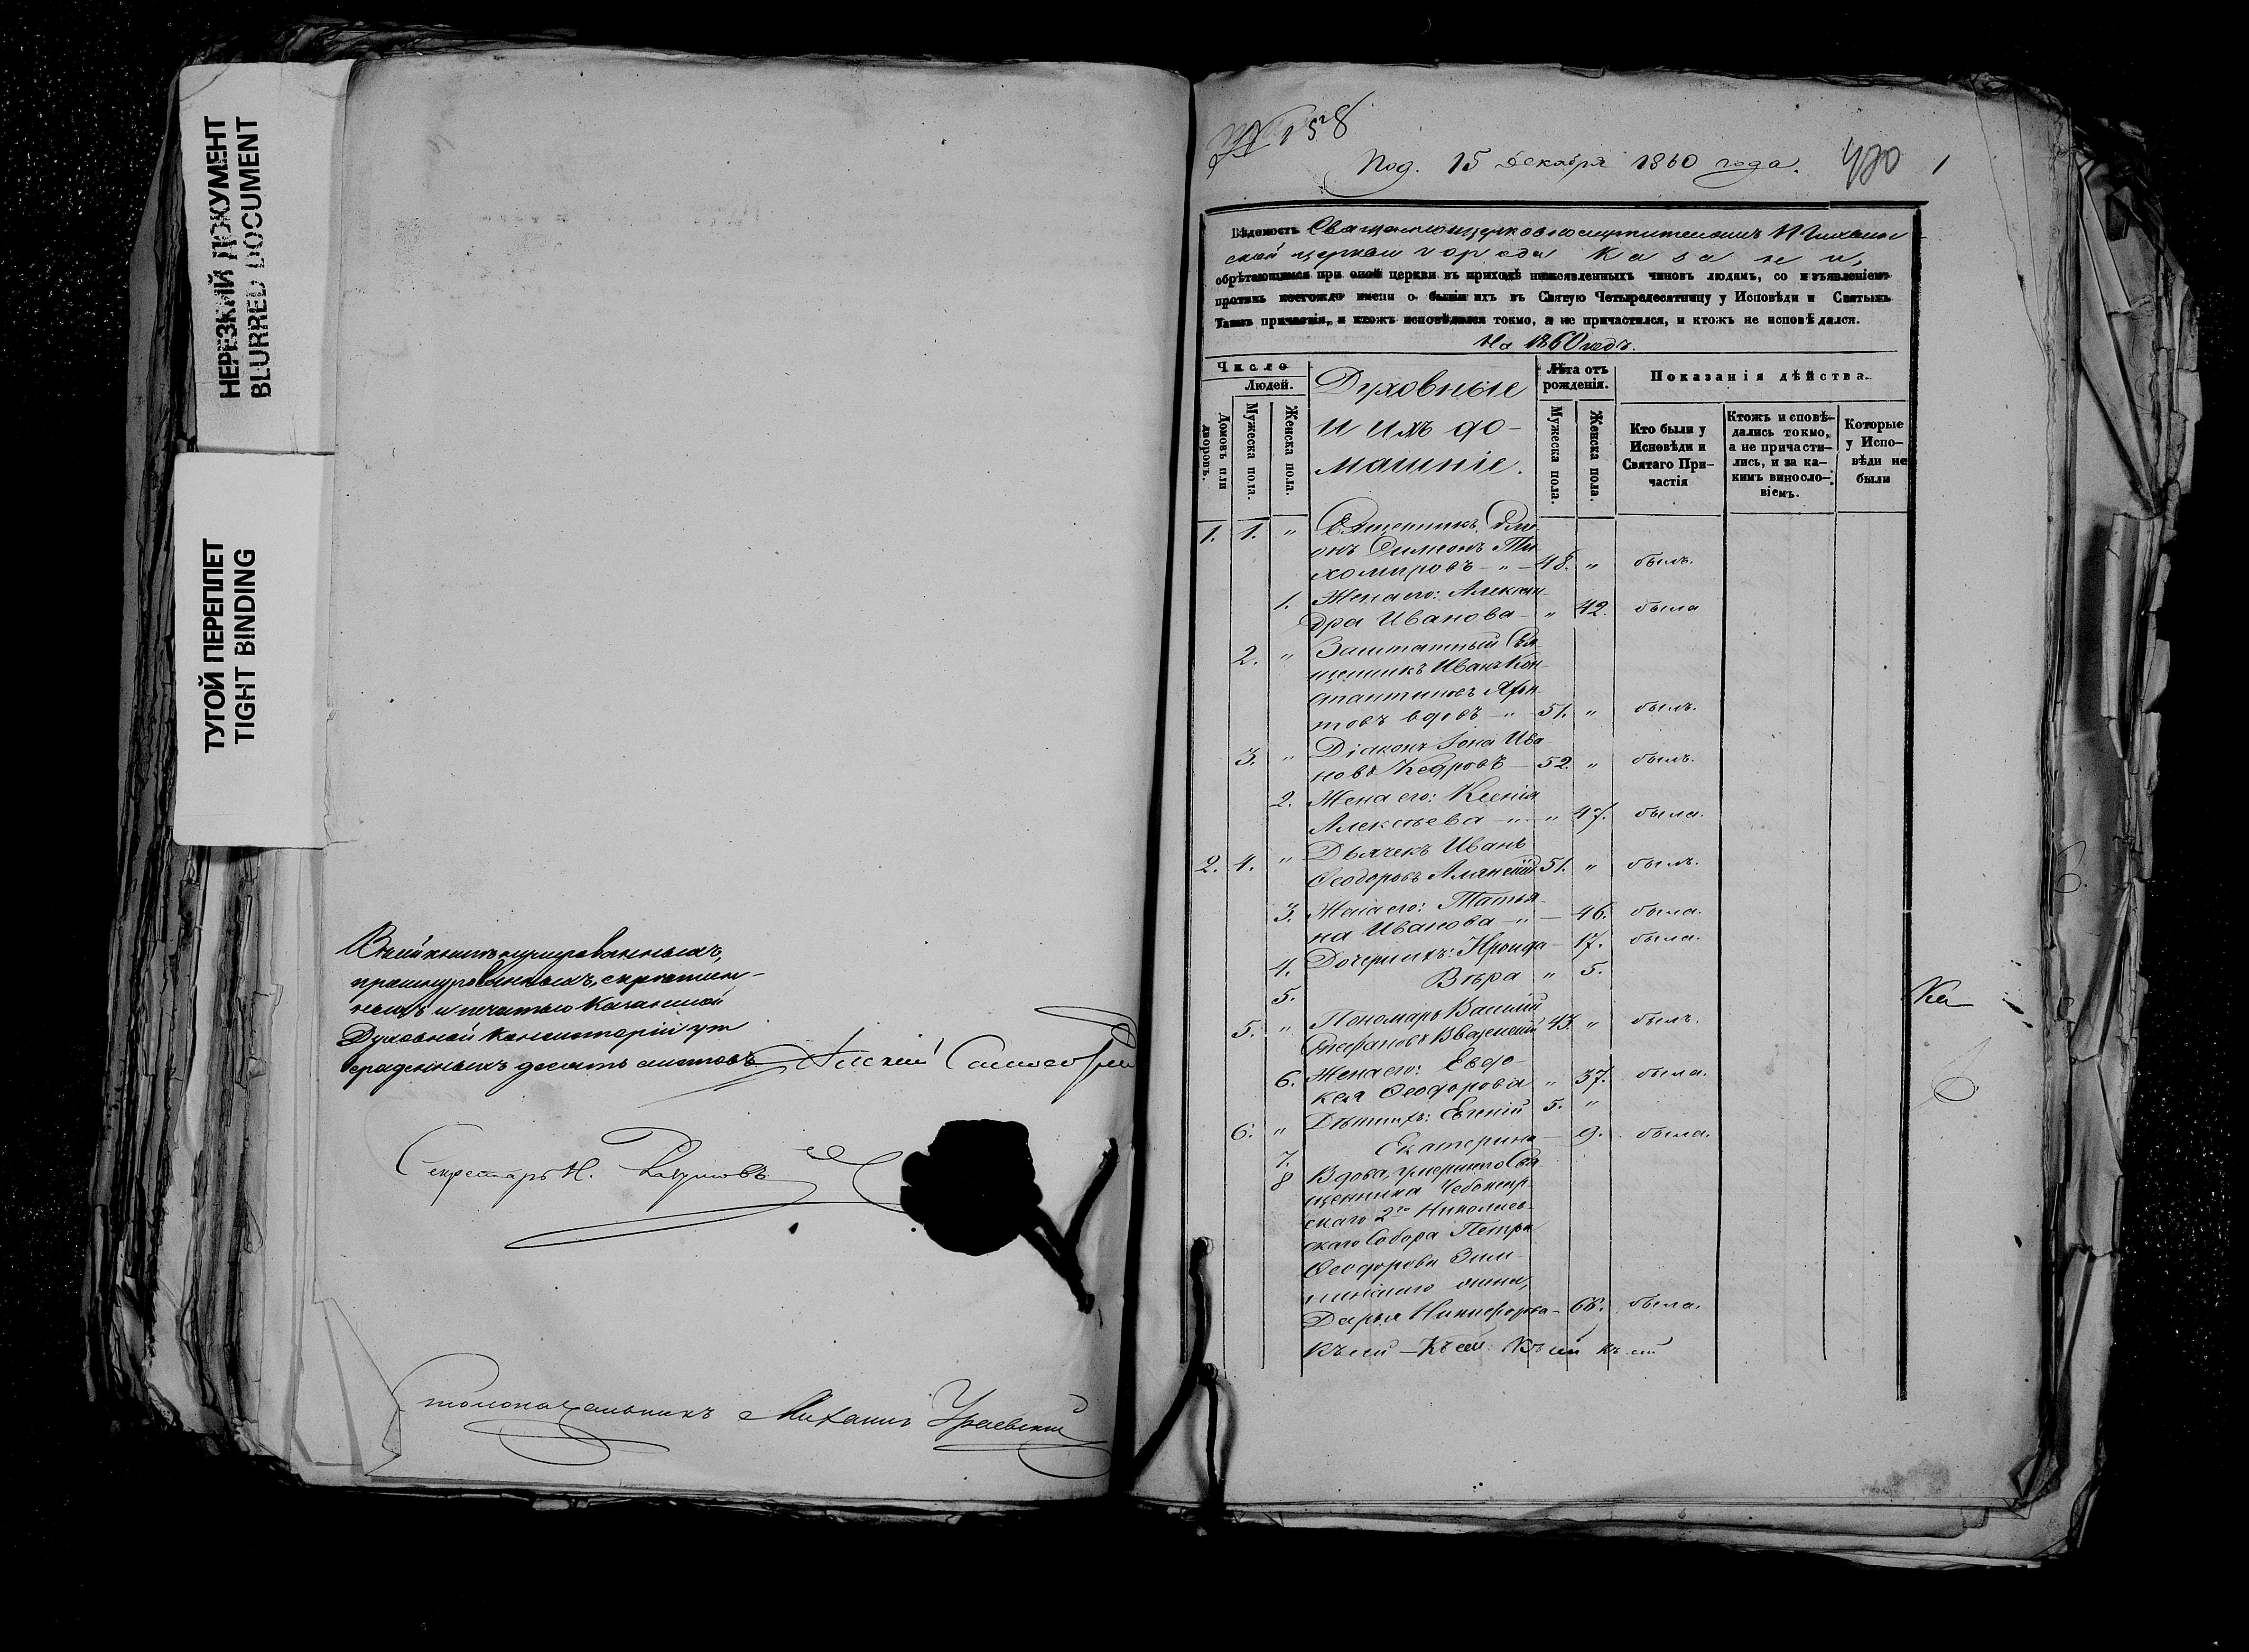 НЕРЕЗКИЙ ДОКУМЕНТ
BLURRED DOCUMENT
ТУГОЙ ПЕРЕПЛЕТ
TIGHT BINDING
Въ сей книгѣ нумерованныхъ,
прошнурованныхъ, скрѣплен-
ныхъ и печатью Казанской
Духовной Консисторіи ут
вержденныхъ десять листовъ
Секретарь Н.
Столоначальникъ Михаилъ
№ 158
Под. 15 декабря 1860 года. 420 1
Вѣдомость Священноцерковнослужителей
ской церкви города Казани,
обрѣтающимся при оной церкви въ приходѣ нижеявленныхъ чиновъ людямъ, со изъявленіемъ
противъ коегождо имени о бытіи ихъ въ Святую Четыредесятницу у Исповѣди и Святыхъ
Таинъ причастія, и ктожъ исповѣдался токмо, а не причастился, и ктожъ не исповѣдался.
На 1860 годъ.
Число
Людей.
Домовъ или дворовъ.
Мужеска пола.
Женска пола.
Духовные
и ихъ до-
машніе.
Лѣта отъ
рожденія.
Мужеска пола.
Женска пола.
Показанія дѣйства.
Кто были у
Исповѣди и
Святаго При-
частія
Ктожъ исповѣ-
дались токмо,
а не причасти-
лись, и за ка-
кимъ виносло-
віемъ.
Которые
у Испо-
вѣди не
были
1. 1. " Священникъ
Симеонъ Ти
хомировъ - " - 48. " былъ.
1. Жена его: Алексан
дра Иванова - " 42. была
2. " Заштатный Свя
щенникъ Иванъ Кон
стантиновъ
вдовъ - " - 51. " былъ.
3. " Діаконъ Іона Ива
новъ Кедровъ - 52. " былъ.
2. Жена его: Ксенія
Алексѣева - " - " 47. была.
2. 4. " Дьячекъ Иванъ
Ѳеодоровъ 51. " былъ.
3. Жена его: Татья-
на Иванова - " - 46. была.
4. Дочери ихъ: - 17. была.
5. Вѣра " 5.
5. " Пономарь Василій
Стефановъ Введенскій 43. " былъ.
6. Жена его: Евдо-
кея Ѳеодорова " 37. была.
6. " Дѣти ихъ: Евгеній 5. "
7. Екатерина - 9. была.
8 Вдова, умершаго Свя
щенника Чебоксар-
скаго 2го Николаев-
скаго Собора Петра
Ѳеодорова
жена,
Дарья Никифорова - 66. была.
Къ сей - Къ сей Къ сей Къ сей
Ка